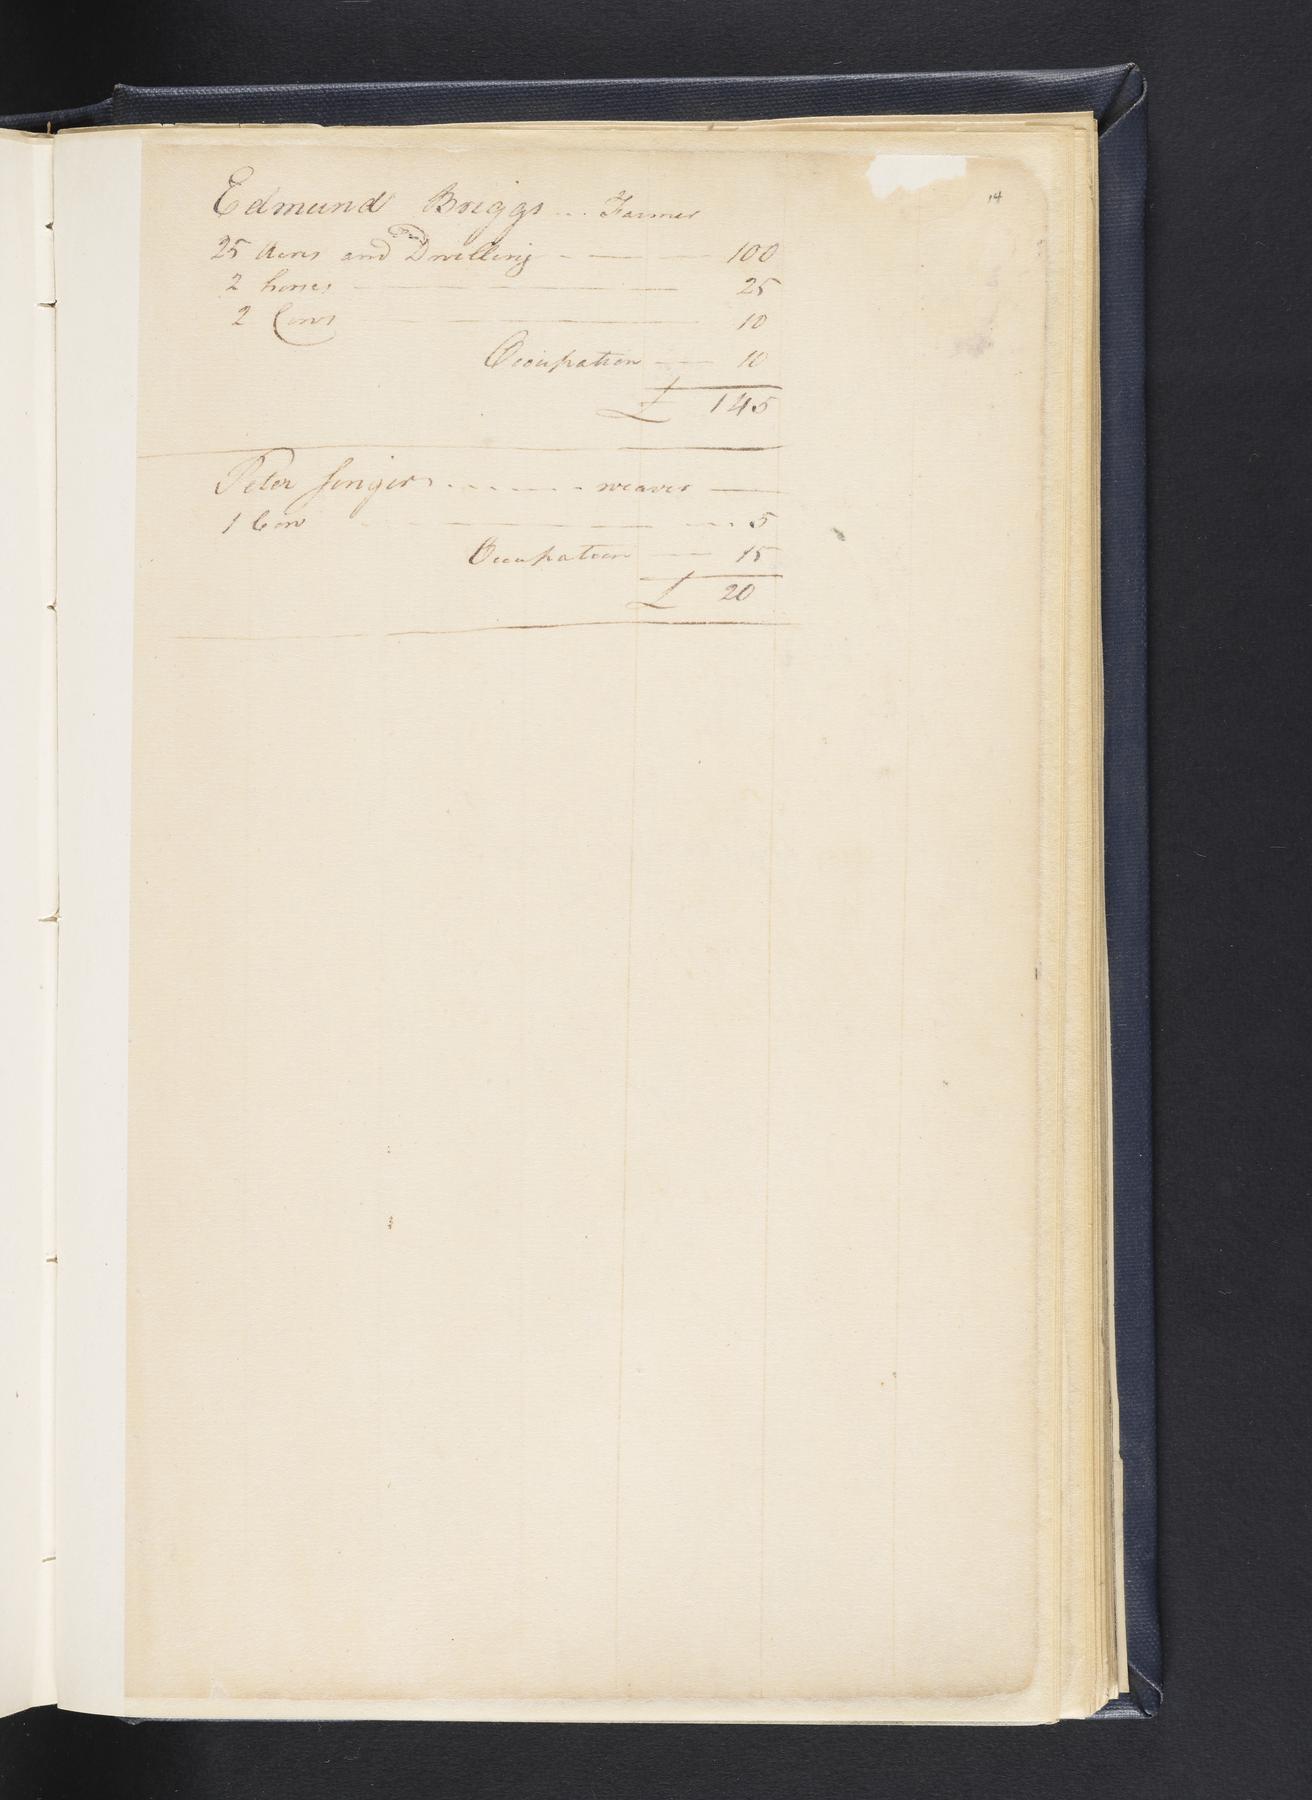 14
Edmund Briggs ... Farmer
25 Acres and Dwelling - - - 100
2 horses - - - 25
2 Cows - - - 10
Occupation - - 10
£ 145
Peter - - - - - weaver -
1 Cow - - - 5
Occupation - - 15
£ 20